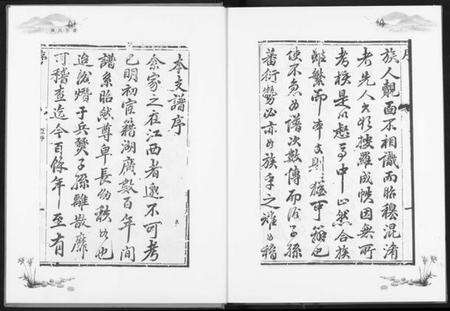 本支譜序
余家之在江西者遠不可考
已明初官籍湖廣數百年間
譜系昭然尊卑長幼秩如也
迨流于兵燹子孫離散靡
可稽查迄今百餘年至有
族人覿面不相識而昭穆混淆
考先人大搜羅成帙因無所
考核是以中止然合族
雖繁而本支則猶可溯也
使不負譜次傳而後子孫
蕃衍勢必亦如族之難稽
序